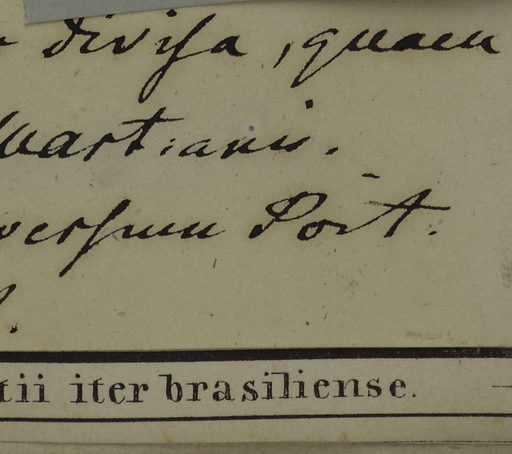 divisa, quam
Mart. anis.
versum Port.
tii iter brasiliense.